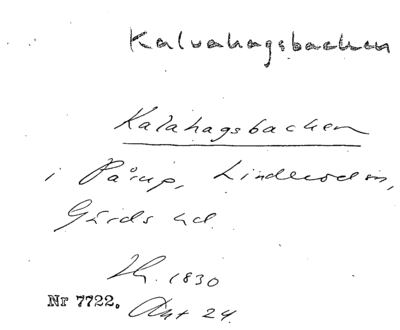 Kalvahagsbacken
Kalahagsbacken
i Pårup, Linderödsn,
Gärds hd.
1830
Nr 7722. Akt 24.